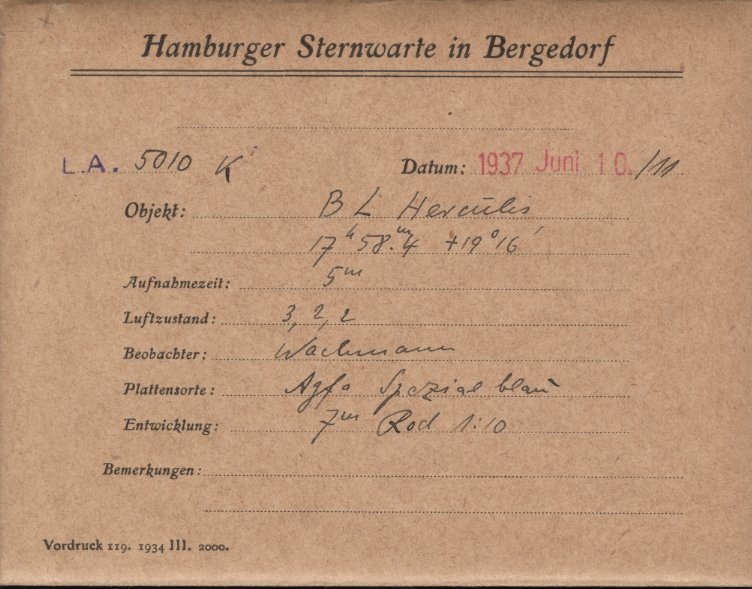 Hamburger Sternwarte in Bergedorf
L.A. 5010 K Datum: 1937 Juni 10./11.
Objekt: BL Herculis
17ʰ 58.ᵐ4 +19°16'
Aufnahmezeit: 5ᵐ
Luftzustand: 3, 2, 2
Beobachter: Wachmann
Plattensorte: Agfa Spezial blau
Entwicklung: 7ᵐ Rod 1:10
Bemerkungen:
Vordruck 119. 1934 III. 2000.